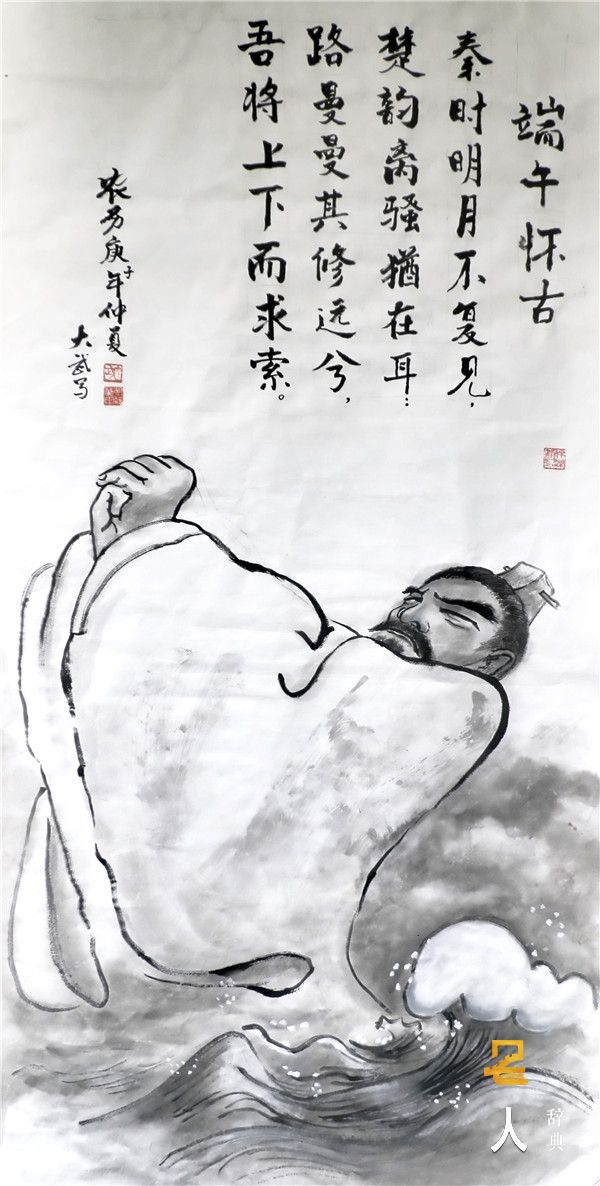 端午怀古
秦时明月不复见，
楚韵离骚猶在耳：
路曼曼其修远兮，
吾将上下而求索。
农历庚子年仲夏
大武写
名人
辞典